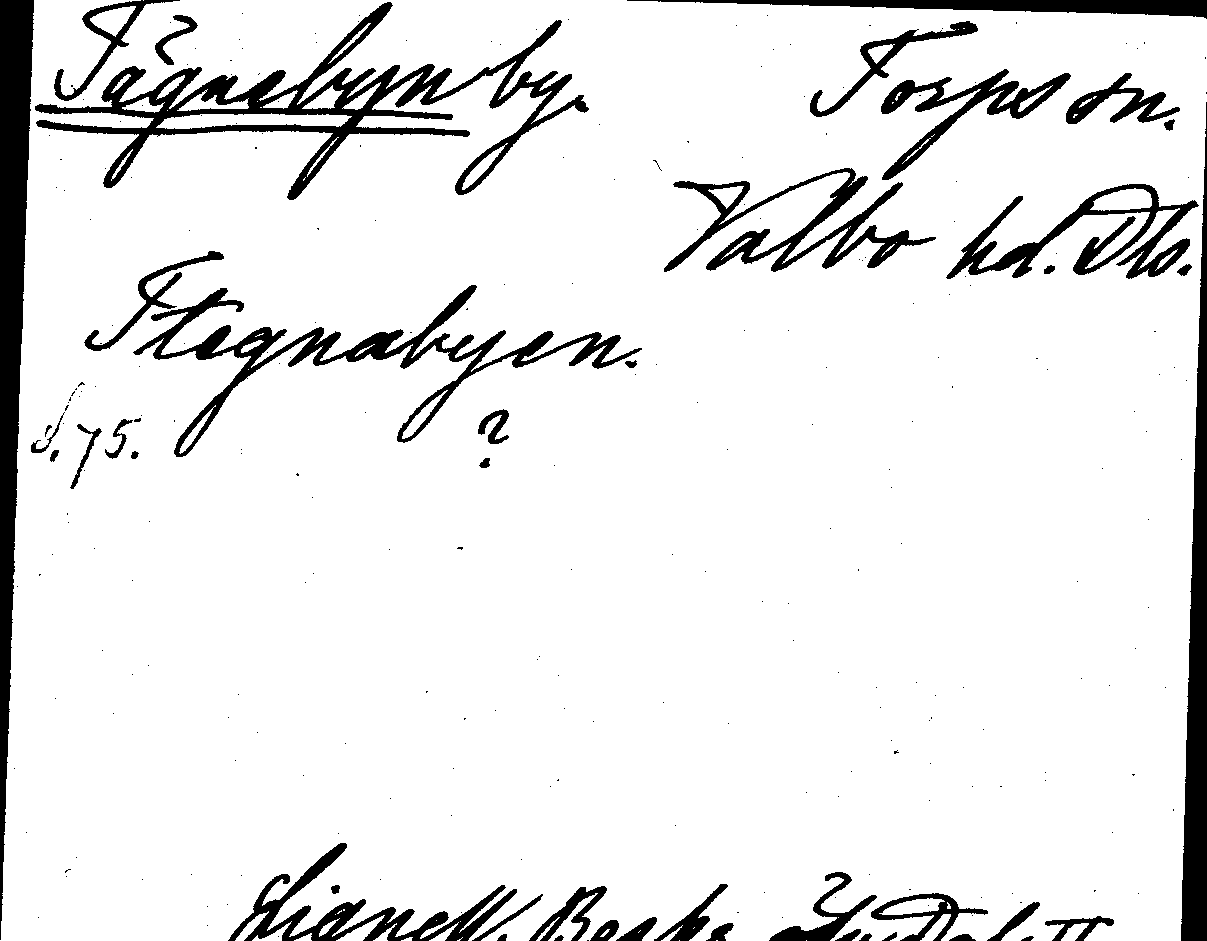 Tågnebyn by. Torps sn.
Valbo hd. Dls.
Ttegnabyen.
S. 75. ?
Lignell. Beskr. Dal. II